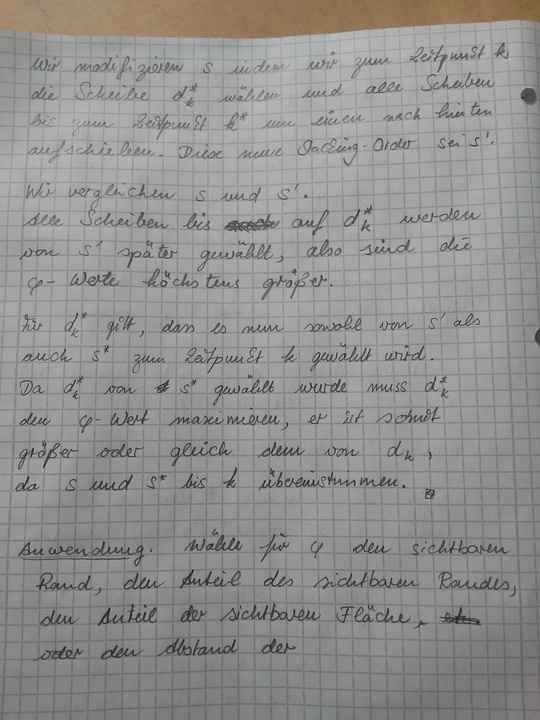 Wir modifizieren s indem wir zum Zeitpunkt k
die Scheibe d*k wählen und alle Scheiben
bis zum Zeitpunkt k* um einen nach hinten
aufschieben. Diese neue Stacking-Order sei s'.
Wir vergleichen s und s'.
Alle Scheiben bis auf d*k werden
von s' später gewählt, also sind die
φ-Werte höchstens größer.
Für d*k gilt, dass es nun sowohl von s' als
auch s* zum Zeitpunkt k gewählt wird.
Da d*k von s* gewählt wurde muss d*k
den φ-Wert maximieren, er ist somit
größer oder gleich dem von dk,
da s und s* bis k übereinstimmen.
Anwendung. Wähle für φ den sichtbaren
Rand, den Anteil des sichtbaren Randes,
den Anteil der sichtbaren Fläche,
oder den Abstand der